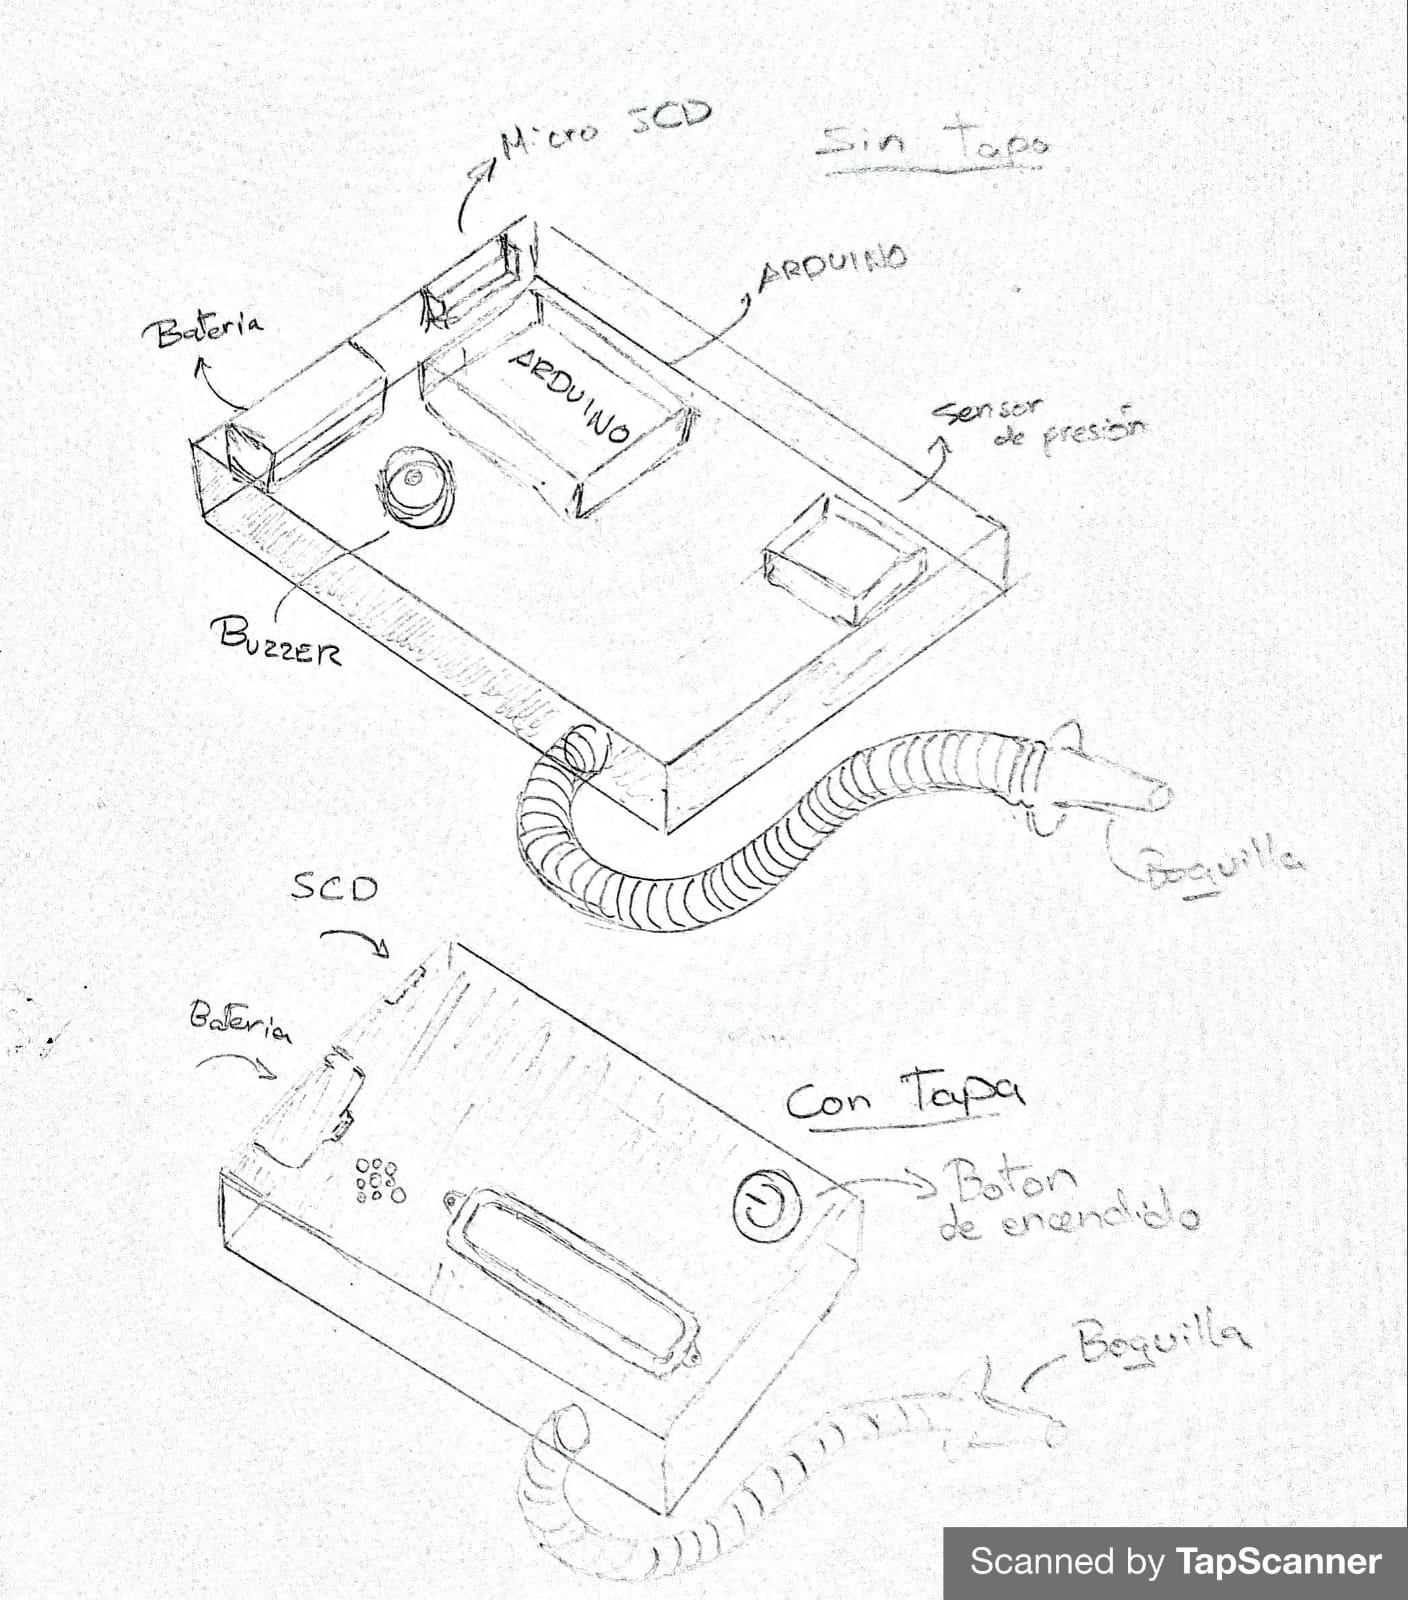 Micro SCD
Sin Tapa
ARDUINO
Bateria
ARDUINO
Sensor
de presión
BUZZER
Boquilla
SCD
Bateria
Con Tapa
Boton
de encendido
Boquilla
Scanned by TapScanner